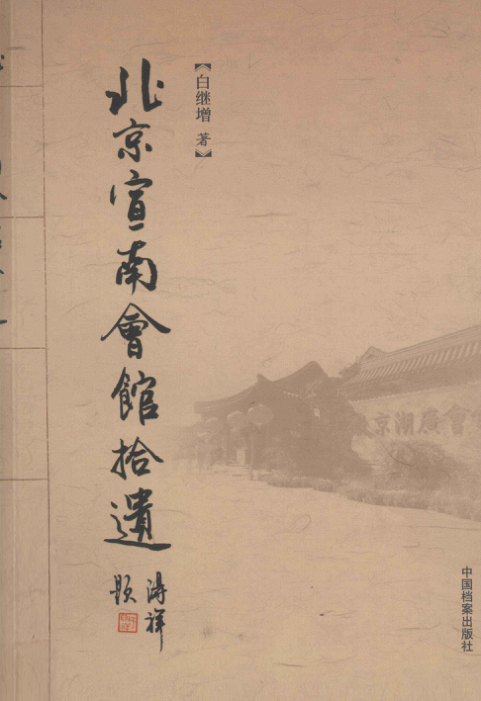 北京宣南會館拾遺
【白继增 著】
涛祥
题
北京湖廣會館
中国档案出版社